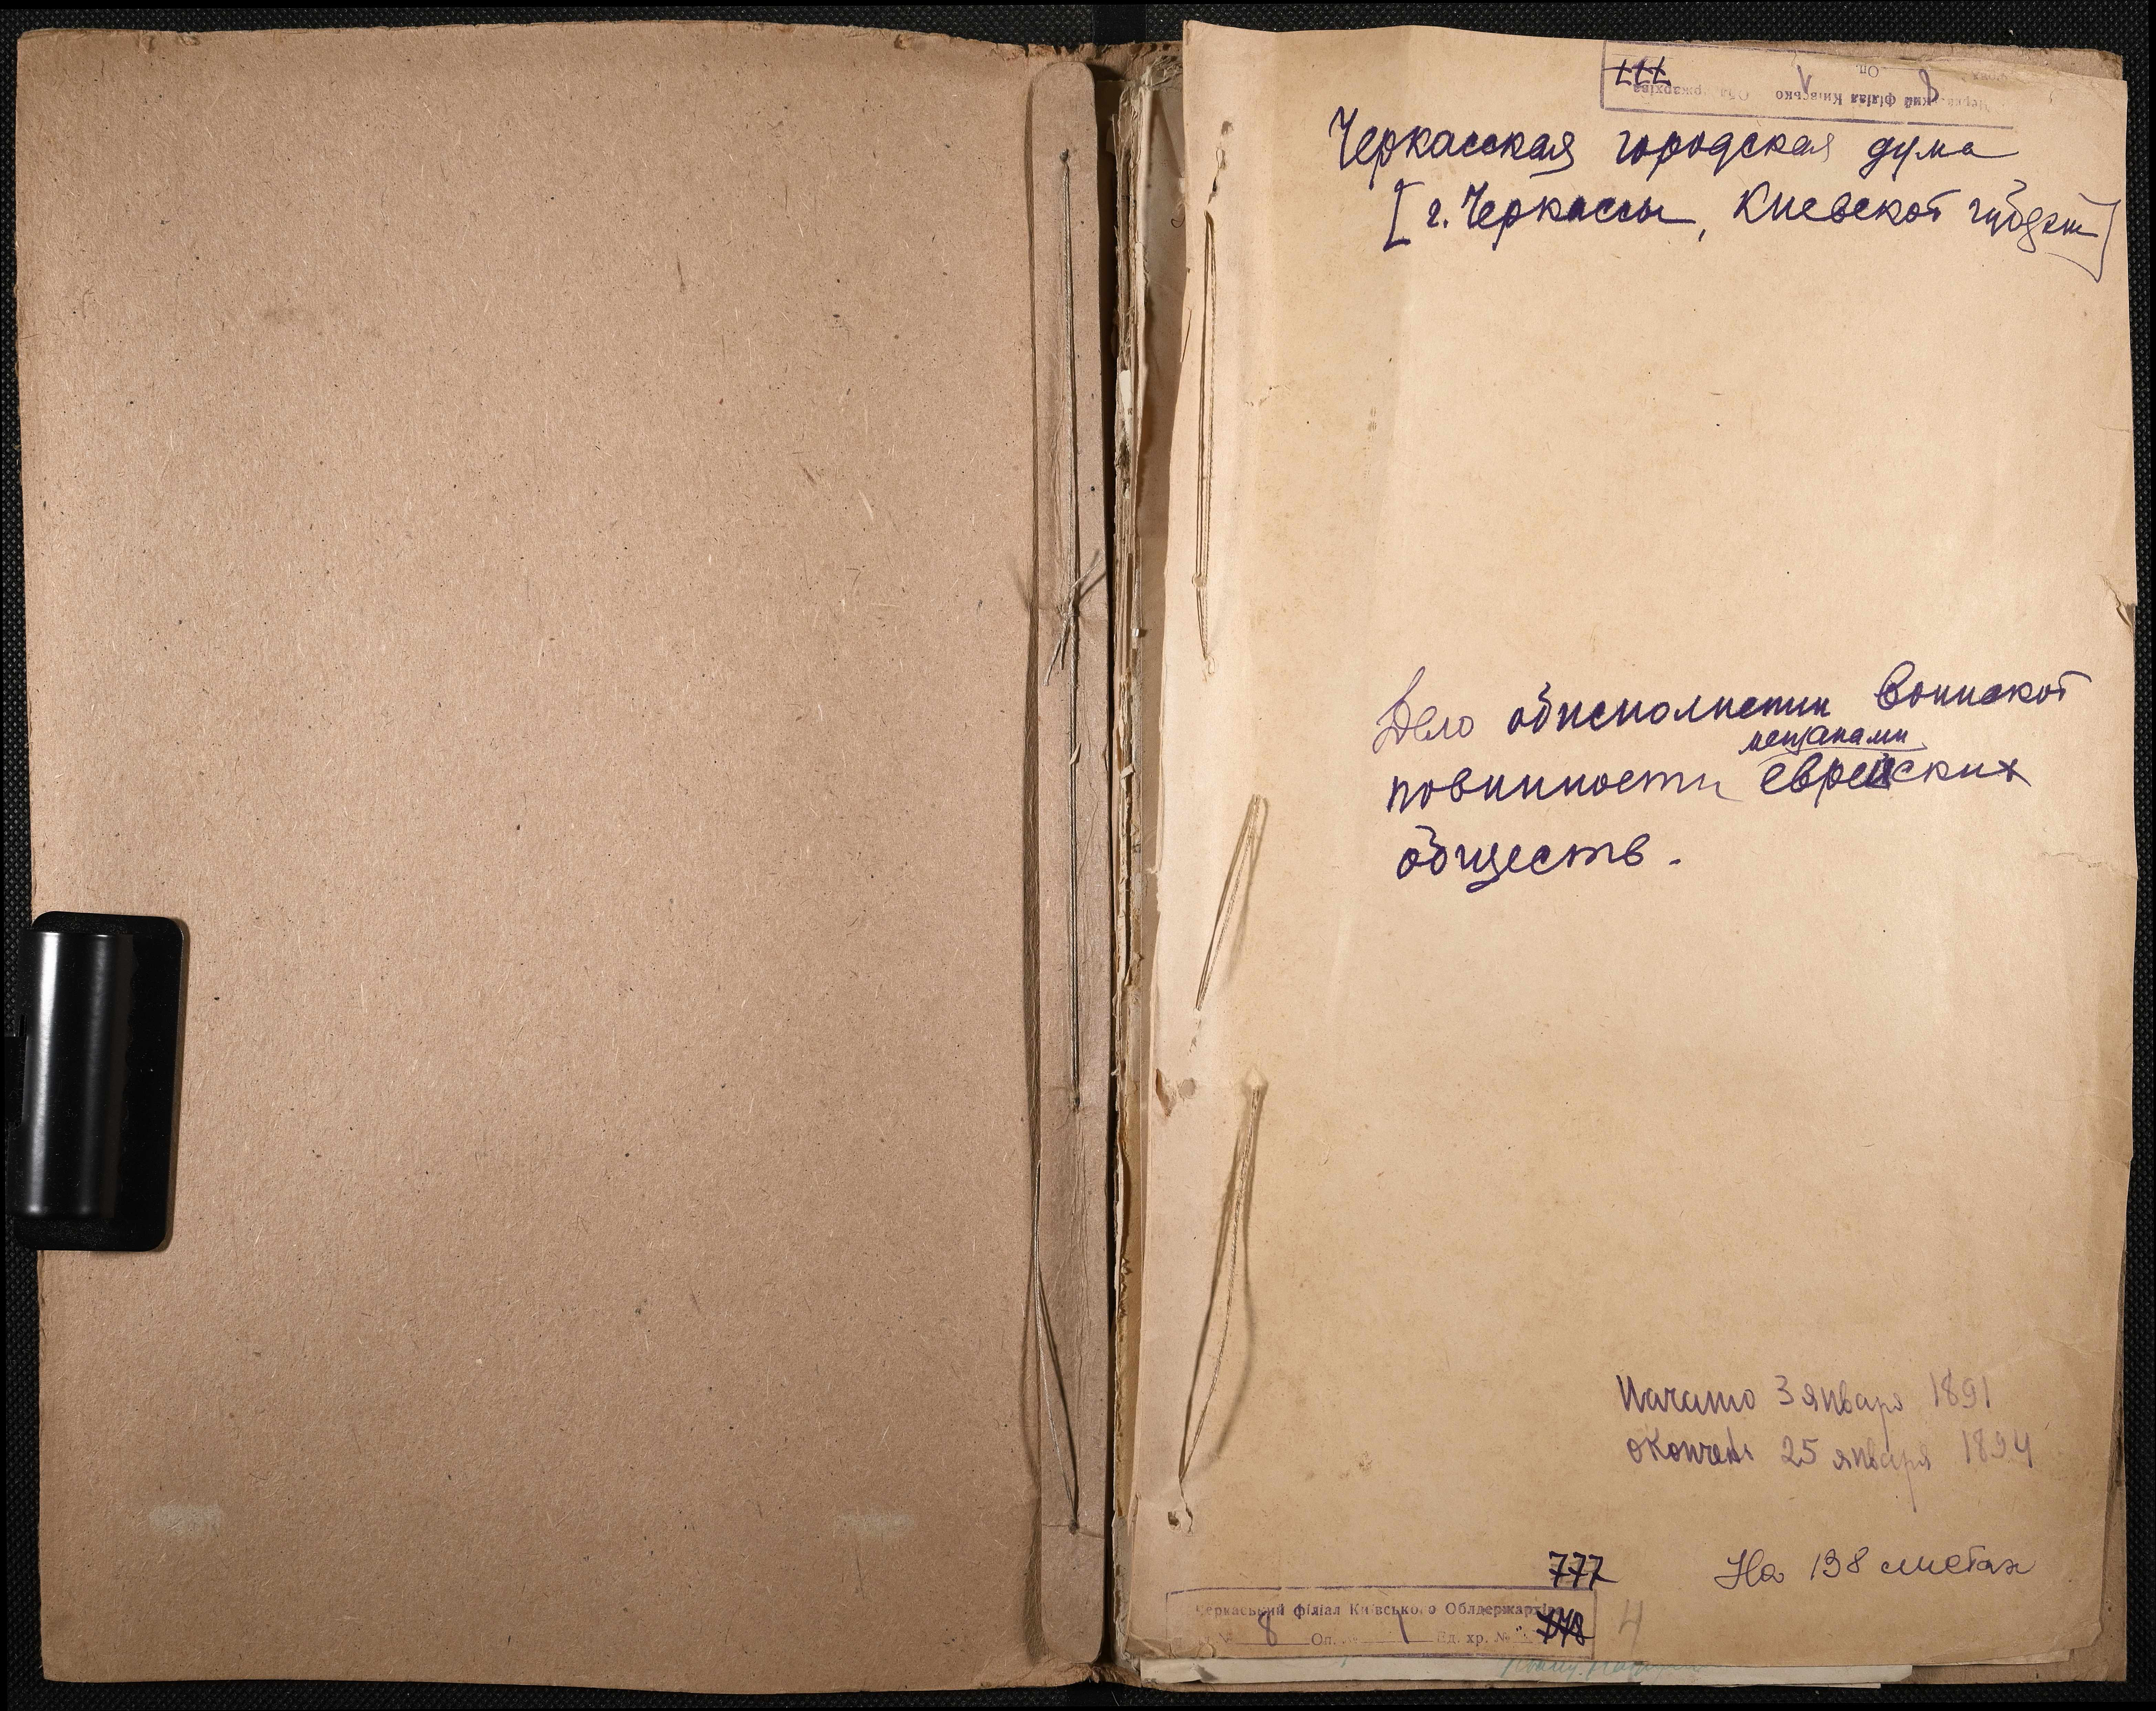 777
Черкаський філіал Київсько Облдержархіва
Оп.
Черкасская городская дума
[г. Черкассы, Киевской губернии]
Дело об исполнении воинской
мещанами
повинности еврейских
обществ.
Начато 3 января 1891
Окончено 25 января 1894
777
На 198 листах
Черкаський філіал Київського Облдержархіва
8 Оп. 1 Ед. хр. № 4